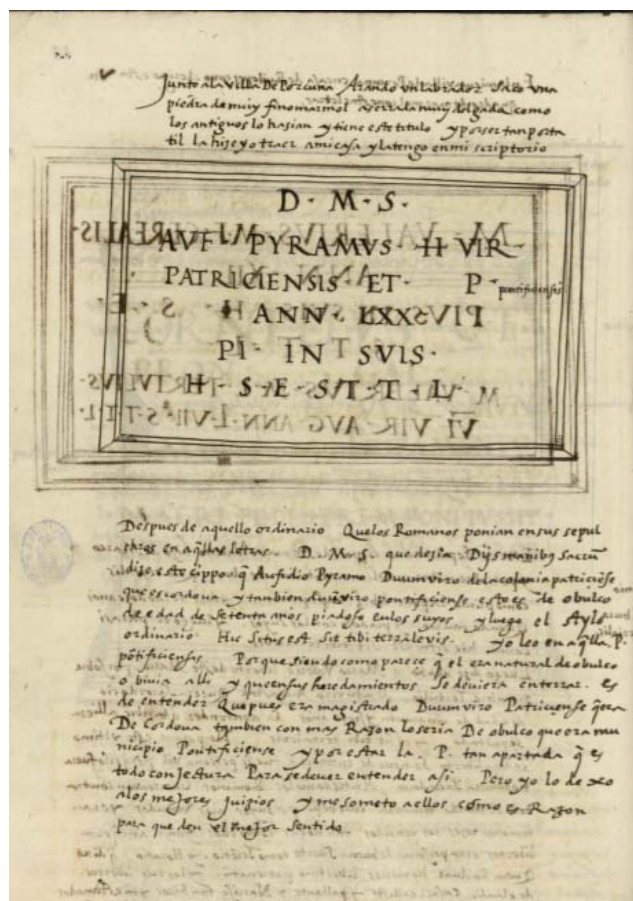 Junto a la villa De Porcuna Arando un labrador Saco una
piedra de muy fino marmol aserrada muy delgada como
los antiguos lo hasian y tiene este titulo y por ser tan porta
til la hize yo traer a mi casa y la tengo en mi scriptorio
D · M · S ·
AVF · PYRAMVS · II VIR
PATRICIENSIS ET · P · pontificiensis
ANN · LXX
PI · IN SVIS ·
H · S · E · S · T · T · L ·
Despues de aquello ordinario Que los Romanos ponian en sus sepul
chros en aqllas letras . D . M . S . que desia Dijs manibq sacrũ
dise este cippo q̃ Aufidio Pyramo Duumviro de la colonia patriciẽse
que es cordova y tanbien duũviro pontificiense esto es de obulco
de edad de setenta años piadoso en los suyos y luego el stylo
ordinario Hic situs est Sit tibi terra levis . yo leo en aq̃lla . P .
põtificiensis Porque siendo como parece q̃ el era natural de obulco
o bivia alli y que en sus heredamientos Se deviera enterrar . es
de entender Que pues era magistrado Duumviro Patriciense q̃ era
De Cordova tanbien con mas Razon lo seria De obulco que era mu
nicipio Pontificiense y por estar la . P . tan apartada q̃ es
todo conjectura Para se dever entender asi Pero yo lo dexo
a los mejores juizios y me someto a ellos como es Razon
para que den el mejor sentido .